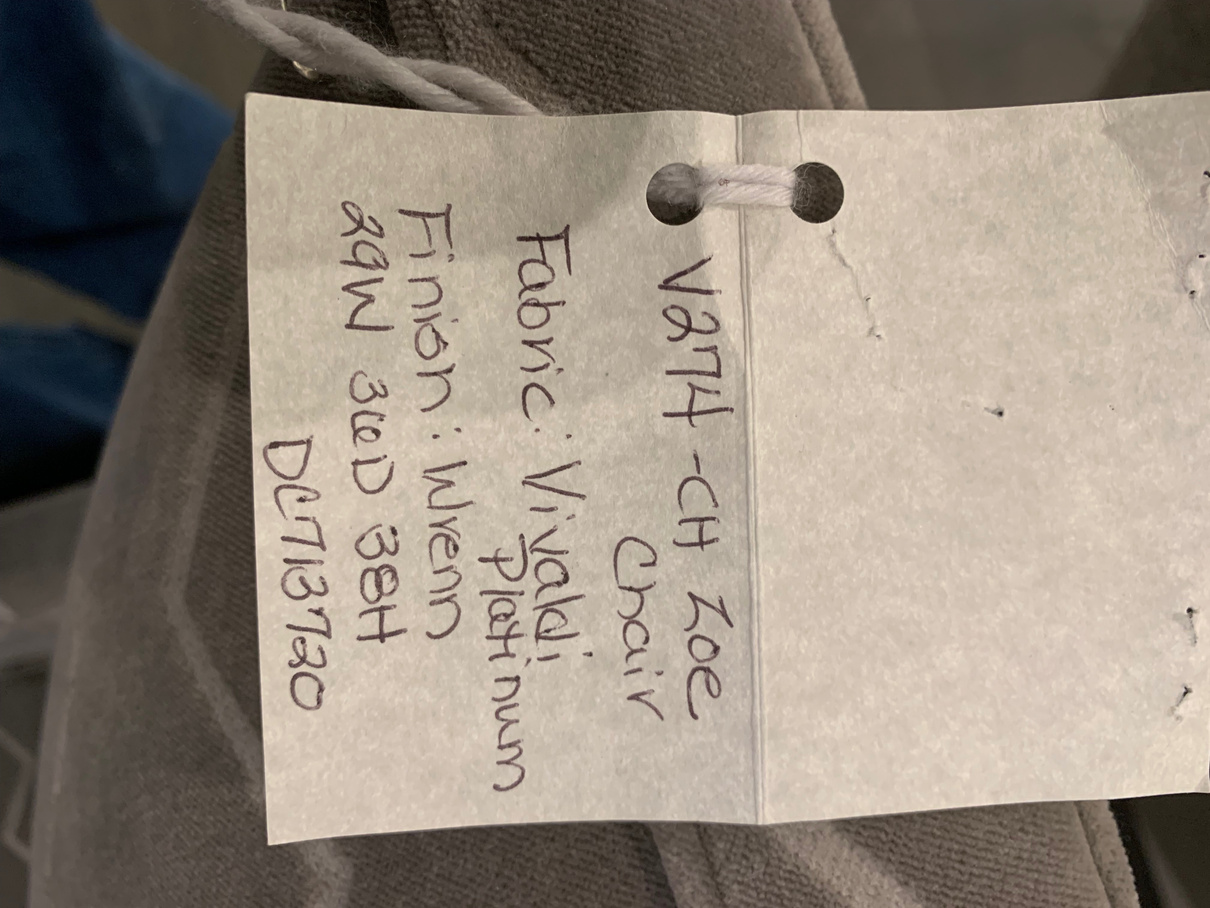 V274-CH Zoe
Chair
Fabric: Vivaldi
Platinum
Finion: Wrenn
29W 36D 38H
DC713720